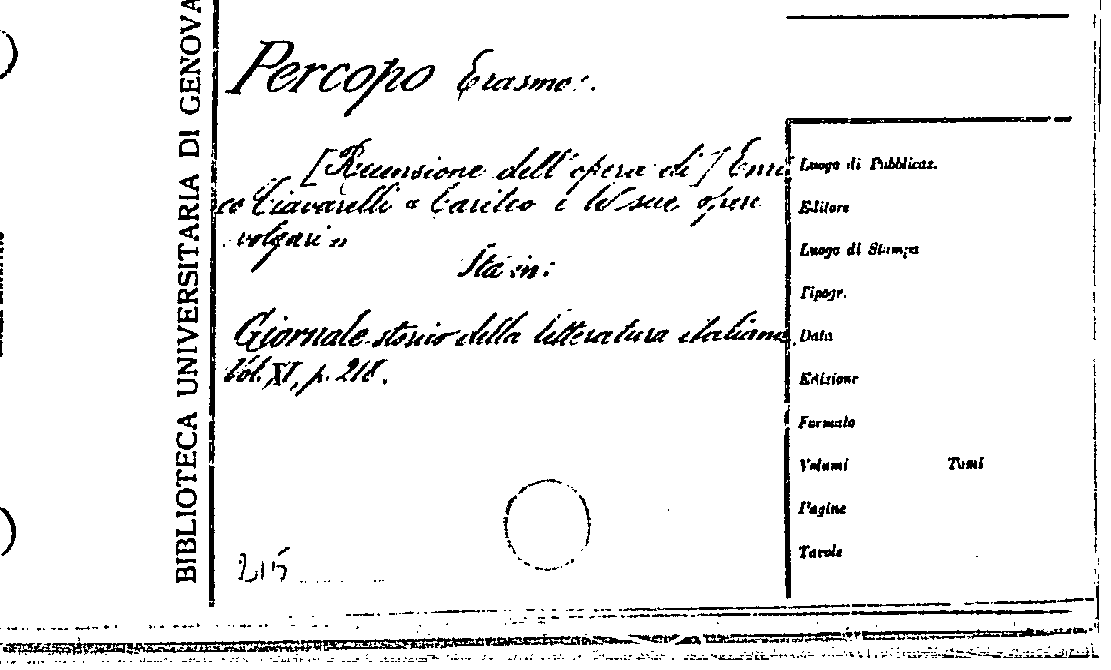 BIBLIOTECA UNIVERSITARIA DI GENOVA
Percopo Erasmo.
[Recensione dell'opera di] Enri
co Ciavarelli « Cariteo e le sue opere
volgari »
Sta in:
Giornale storico della letteratura italiana,
Vol. XI, p. 218.
215
Luogo di Pubblicaz.
Editore
Luogo di Stampa
Tipogr.
Data
Edizione
Formato
Volumi Tomi
Pagine
Tavole